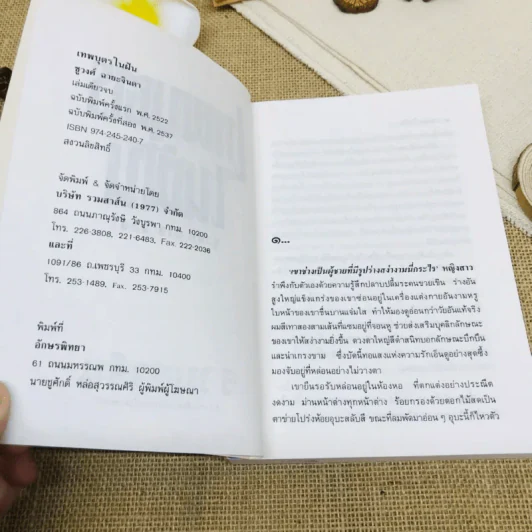 เทพบุตรในฝัน
ชูวงศ์ ฉายะจินดา
เล่มเดียวจบ
ฉบับพิมพ์ครั้งแรก พ.ศ. 2522
ฉบับพิมพ์ครั้งที่สอง พ.ศ. 2537
ISBN 974-245-240-7
สงวนลิขสิทธิ์
จัดพิมพ์ & จัดจำหน่ายโดย
บริษัท รวมสาส์น (1977) จำกัด
864 ถนนภาณุรังษี วังบูรพา กทม. 10200
โทร. 226-3808, 221-6483, Fax. 222-2036
และที่
1091/86 ถ.เพชรบุรี 33 กทม. 10400
โทร. 253-1489, Fax. 253-7915
พิมพ์ที่
อักษรพิทยา
61 ถนนมหรรณพ กทม. 10200
นายชูศักดิ์ หล่อสุวรรณศิริ ผู้พิมพ์ผู้โฆษณา
๑...
'เขาช่างเป็นผู้ชายที่มีรูปร่างสง่างามนี่กระไร' หญิงสาว
รำพึงกับตัวเองด้วยความรู้สึกปลาบปลื้มระคนขวยเขิน ร่างอัน
สูงใหญ่แข็งแกร่งของเขาซ่อนอยู่ในเครื่องแต่งกายอันงามหรู
ใบหน้าของเขาชื่นบานแจ่มใส ทำให้มองดูอ่อนกว่าวัยอันแท้จริง
ผมสีเทาสองสามเส้นที่แซมอยู่ที่จอนหู ช่วยส่งเสริมบุคลิกลักษณะ
ของเขาให้สง่างามยิ่งขึ้น ดวงตาใหญ่สีดำสนิทบอกลักษณะบึกบึน
และน่าเกรงขาม ซึ่งบัดนี้ทอแสงแห่งความรักเอ็นดูอย่างสุดซึ้ง
มองจับอยู่ที่หล่อนอย่างไม่วางตา
เขายืนรอรับหล่อนอยู่ในห้องหอ ที่ตกแต่งอย่างประณีต
งดงาม ม่านหน้าต่างทุกหน้าต่าง ร้อยกรองด้วยดอกไม้สดเป็น
ตาข่ายโปร่งห้อยอุบะสลับสี ขณะที่ลมพัดมาอ่อน ๆ อุบะนี้ก็ไหวตัว